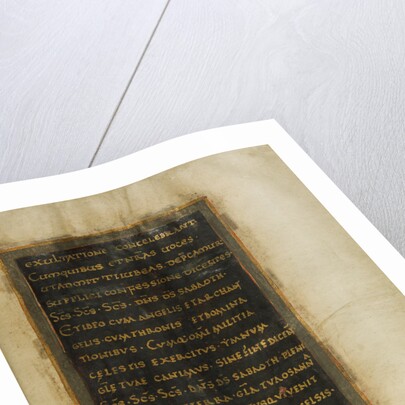 EXULTATIONE CONCELEBRANT
CUMQUIBUS ET NRAS UOCES
UTADMITTI IUBEAS DEPCAMUR
SUPPLICI CONFESSIONE DICENTES
SC̄S SC̄S SC̄S DN̄S DS̄ SABAOTH
ET IDEO CUM ANGELIS ET ARCHAN
GELIS CUM THRONIS ET DOMINA
TIONIBUS CUMQ OMNI MILITIA
CELESTIS EXERCITUS YMNUM
GLE TUAE CANIMUS SINE FINE DICEN
SC̄S SC̄S SC̄S DN̄S DS̄ SABAOTH PLENI
TERRA GLA TUA OSANNA
QUI UENIT